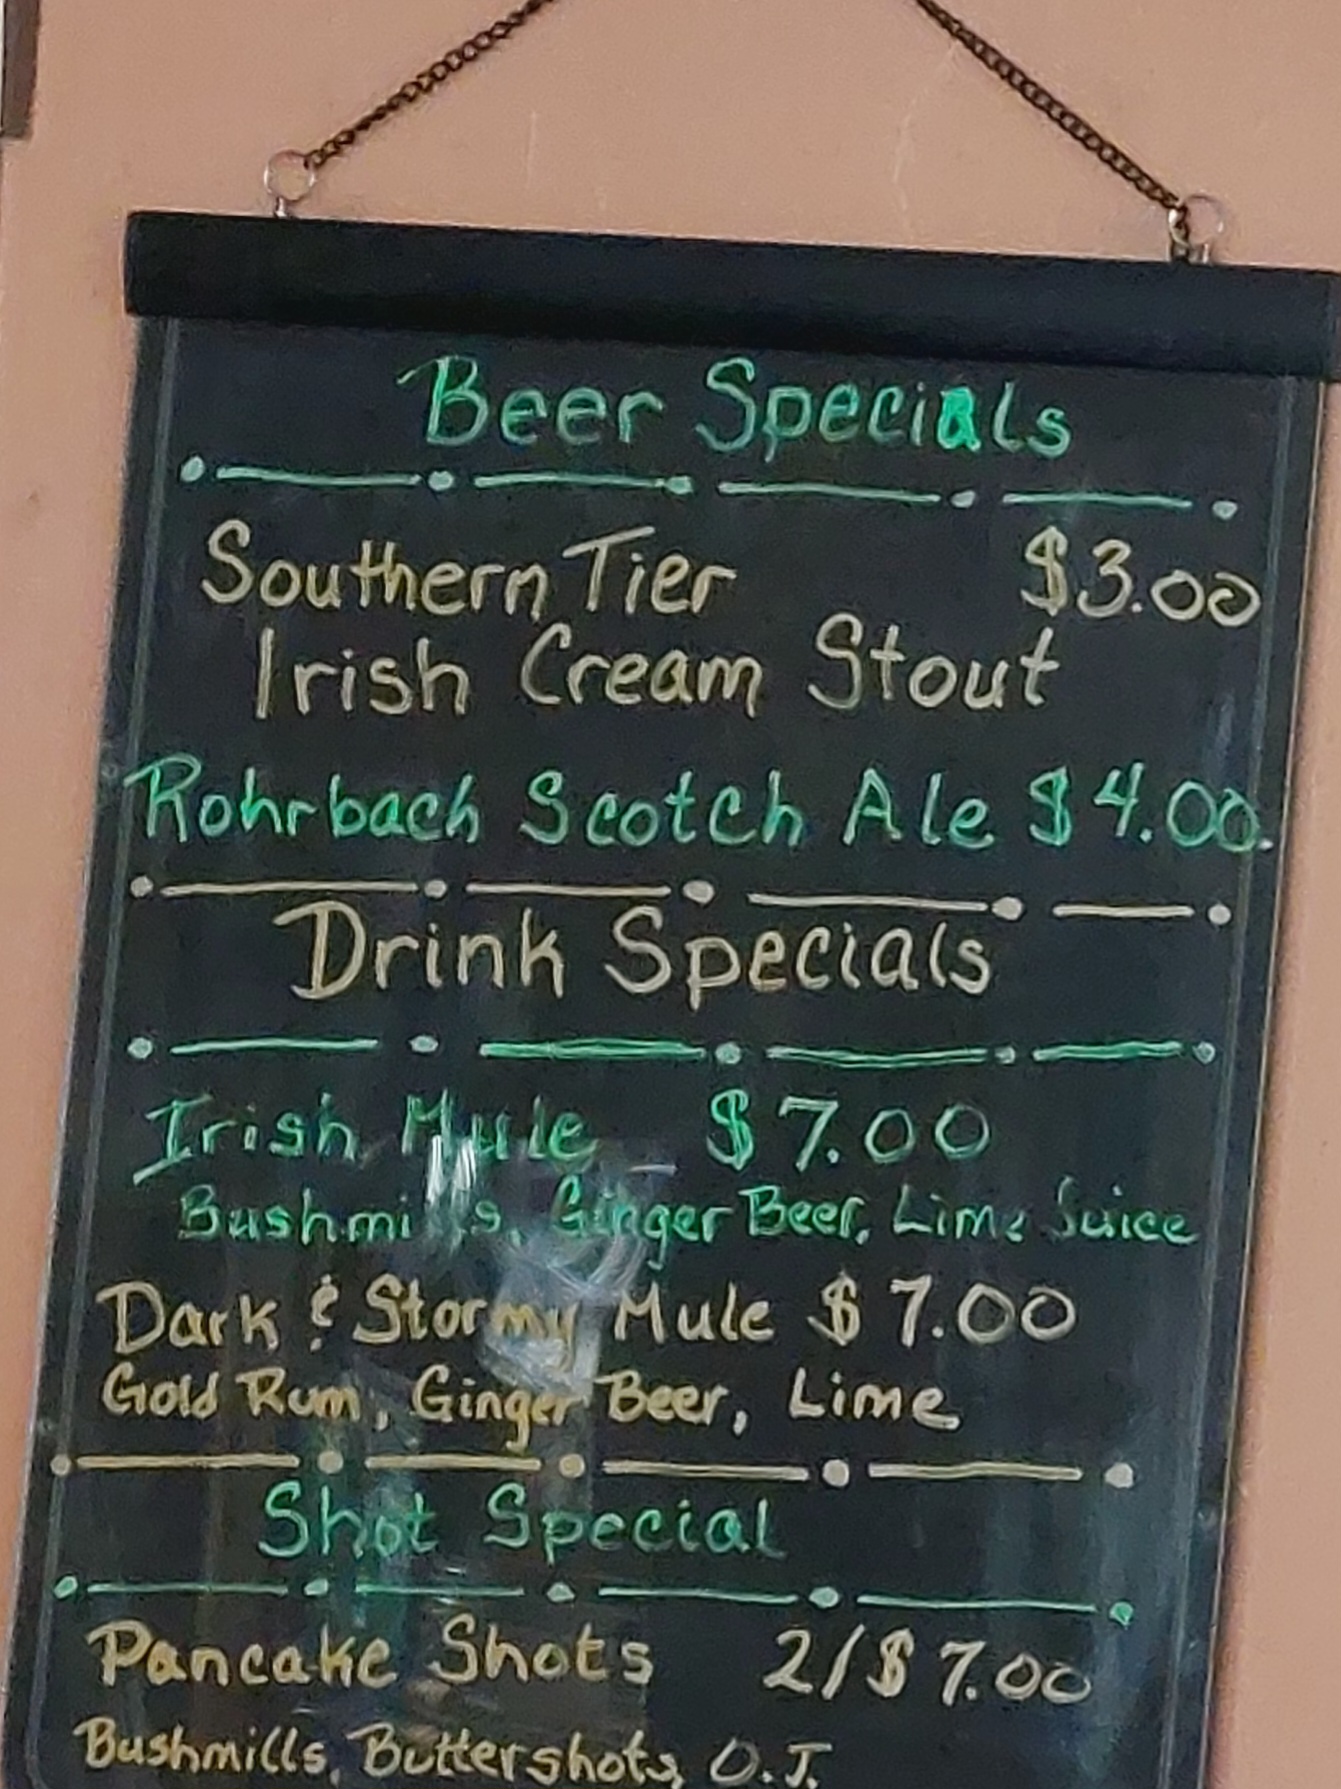 Beer Specials
Southern Tier $3.00
Irish Cream Stout
Rohrbach Scotch Ale $4.00.
Drink Specials
Irish Mule $7.00
Bushmills, Ginger Beer, Lime Juice
Dark & Stormy Mule $7.00
Gold Rum, Ginger Beer, Lime
Shot Special
Pancake Shots 2/$7.00
Bushmills, Buttershots, O.J.